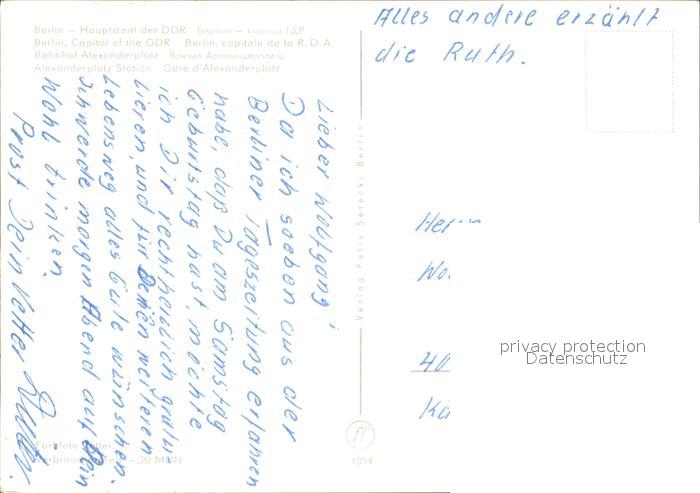 Berlin – Hauptstadt der DDR Берлин – столица ГДР
Berlin, Capital of the GDR Berlin, capitale de la R.D.A.
Bahnhof Alexanderplatz Вокзал Александерплатц
Alexanderplatz Station Gare d'Alexanderplatz
Alles andere erzählt
die Ruth.
Lieber Wolfgang!
Da ich soeben aus der
Berliner Tageszeitung erfahren
habe, daß Du am Samstag
Geburtstag hast, möchte
ich Dir recht herzlich gratu-
lieren, und für Deinen weiteren
Lebensweg alles Gute wünschen.
Ich werde morgen Abend auf Dein
Wohl trinken.
Prost Dein Vetter
Verlag Felix Setecki Berlin
Her
Wo
40
Ka
privacy protection
Datenschutz
Farbfoto
Verbrau 20 MDN
ff
1054